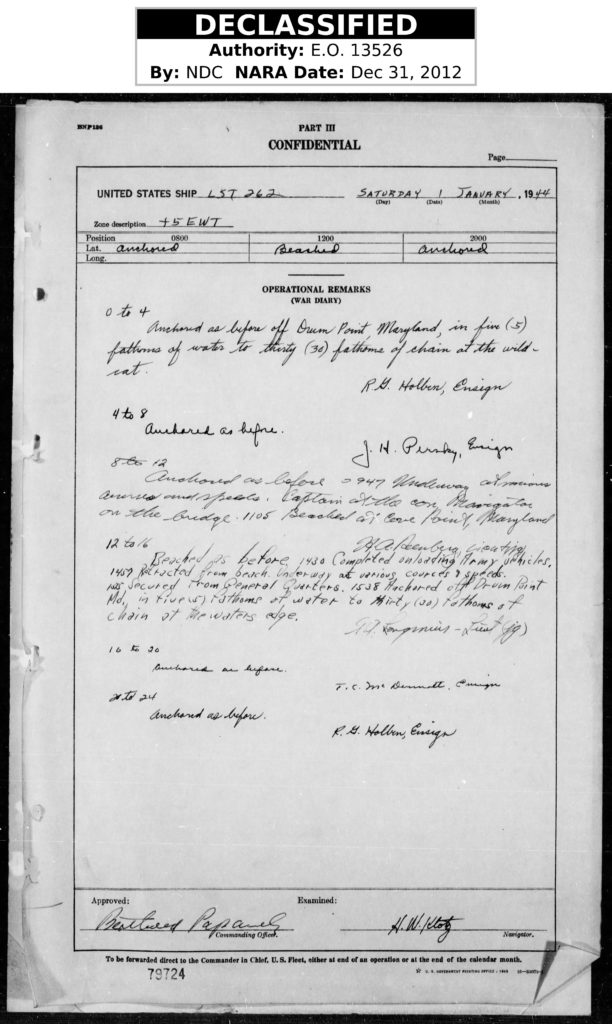 DECLASSIFIED
Authority: E.O. 13526
By: NDC NARA Date: Dec 31, 2012
ENP126
PART III
CONFIDENTIAL
Page
UNITED STATES SHIP LST 262 SATURDAY 1 JANUARY, 1944
(Day) (Date) (Month)
Zone description +5 EWT
Position 0800 1200 2000
Lat. Anchored Beached Anchored
Long.
OPERATIONAL REMARKS
(WAR DIARY)
0 to 4
Anchored as before off Drum Point, Maryland, in five (5)
fathoms of water to thirty (30) fathoms of chain at the wild-
cat.
R.G. Holben, Ensign
4 to 8
Anchored as before.
J. H. Ensign
8 to 12
Anchored as before 0947 Underway at various
courses and speeds. Captain at the con, Navigator
on the bridge. 1105 Beached at Cove Point, Maryland
12 to 16
Beached as before. 1430 Completed onloading Army vehicles.
1457 Retracted from beach. Underway at various courses & speeds.
1525 Secured from General Quarters. 1538 Anchored off Drum Point
Md, in five (5) fathoms of water to thirty (30) fathoms of
chain at the waters edge.
Lieut (jg)
16 to 20
Anchored as before.
T. C. McDermott, Ensign
20 to 24
Anchored as before.
R. G. Holben, Ensign
Approved: Examined:
H. W. Klotz
Commanding Officer. Navigator.
To be forwarded direct to the Commander in Chief, U.S. Fleet, either at end of an operation or at the end of the calendar month.
79724
U. S. GOVERNMENT PRINTING OFFICE